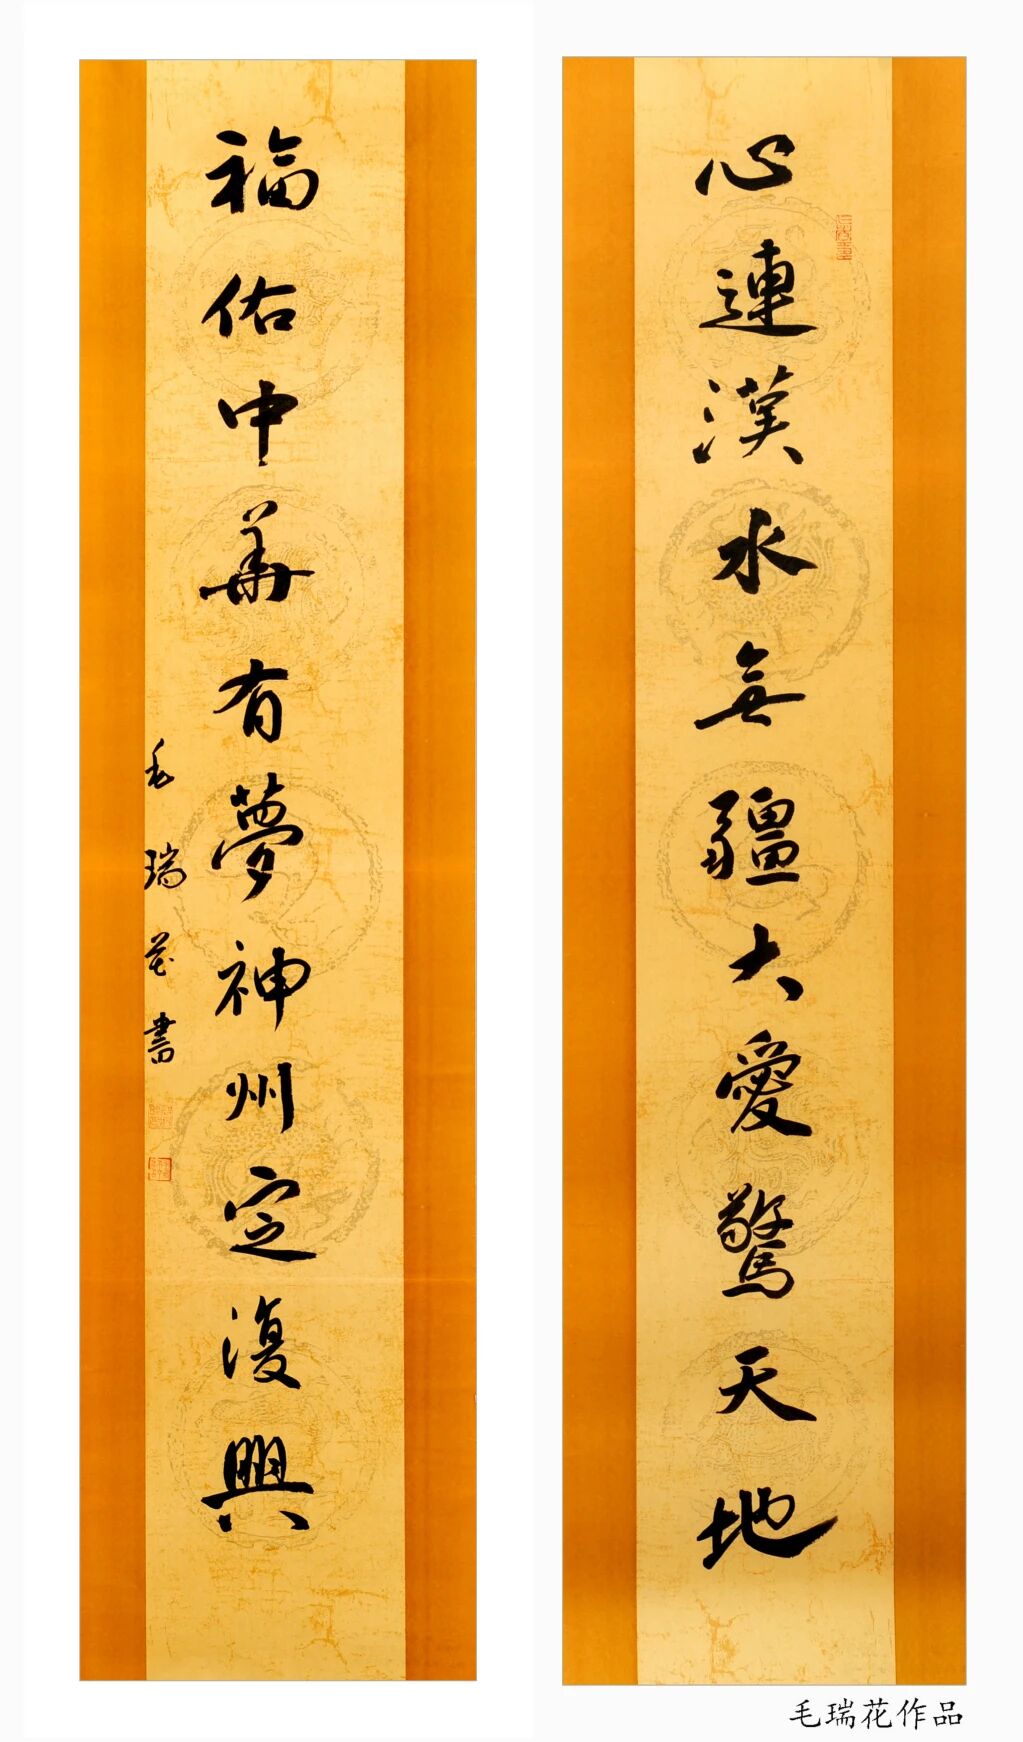 心連漢水無疆大愛驚天地
福佑中華有夢神州定復興
毛瑞花書
毛瑞花作品